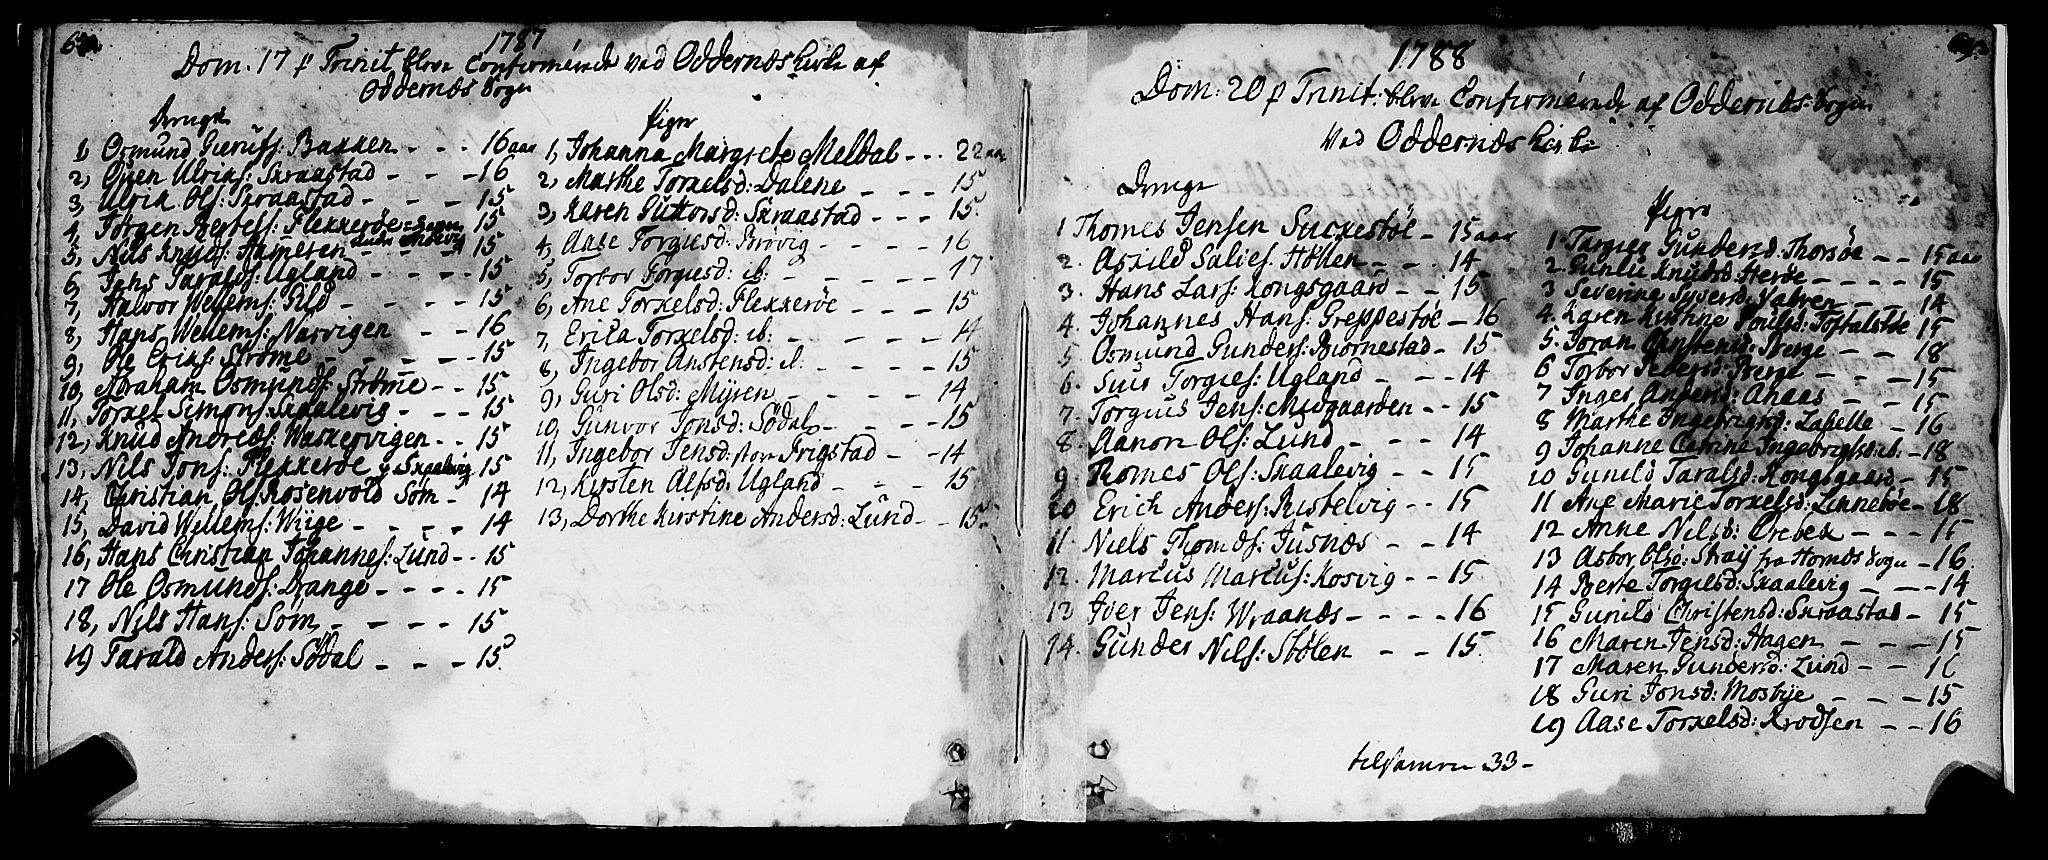 1787
Dom. 17 p Trinit bleve Confirmerede ved Oddernæs kirke af
Oddernæs Sogn
Drenge
1, Osmund Gierufs: Bakken - - - 16 aar
2, Ouen Ulrichs: Skraastad - - - 16
3, Ulrich Ols: Skraastad - - - 15
4, Jørgen Bertels: Flekkerøe 15
5, Nils Knuds: Hameren - - - 15
6, Jens Taralds: Ugland - - - - 15
7, Halvor Wellems: Eeg - - - - 15
8, Hans Wellems: Narvigen - - 16
9, Ole Erichs: Strømme - - - - 15
10, Abraham Osmunds: Strømme - - 15
11, Torkel Simons: Skaalevig - - - 15
12, Knud Andreæs: Waskervigen - - 15
13, Nils Jons: Flekkerøe Skaalevig 15
14, Christian Ols: Rosenvold Søm - 14
15, David Wellems: Wiige - - - - 14
16, Hans Christian Johannes: Lund - - 15
17 Ole Osmunds: Drange - - - - 15
18, Nils Hans: Søm - - - - 15
19 Tarald Anders: Sødal - - - 15
Piger
1, Johanna Margrete Meldal - - - 22 aar
2, Marthe Torkelsd: Dalene - - - 15
3, Karen Guttorsd: Skraastad - - - 15
4, Aase Torgiusd: Brøvig - - - - 16
5, Torbor Torgiusd: ib: - - - - 17
6, Ane Torkelsd: Flekkerøe - - - 15
7, Erica Torkelsd: ib: - - - - 14
8, Ingebor Anstensd: ib. - - - - 15
9, Guri Olsd: Myren - - - - 14
10, Gunvor Jonsd: Sødal - - - - 15
11, Ingebor Jensd: store Frigstad - - 14
12, Kirsten Alfsd: Ugland - - - 15
13, Dorthe Kirstine Andersd: Lund - - 15
1788
Dom: 20 p Trinit: bleve Confirmerede af Oddernæs: Sogn
ved Oddernæs kirke
Drenge
1 Thomes Jensen Suckestøe - 15 aar
2. Askild Salies: Høllen - - - 14
3. Hans Lars: Kongsgaard - - 15
4. Johannes Hans: Greppestøe - 16
5 Osmund Gunders: Biørnestad - 15
6. Siur Torgies: Ugland - - - 14
7. Torgius Jens: Midgaarden - - 15
8 Aanon Ols: Lund - - - 14
9 Thomes Ols: Skaalevig - - 15
10 Erich Anders: Kistelvig - - 15
11 Niels Thomæs: Jusnæs - - 14
12. Marcus Marcus: Kosvig - - 15
13 Iver Jens: Wraanæs - - - - 16
14. Gunder Nils: Stølen - - 15
Piger
1. Targier Gundersd: Thorsøe - - 15 aar
2. Gunlu Knudsd: Herøe - - - - 15
3 Severine Syversd: Valøen - - - 14
4. Karen Kirstine Poulsd: Toftalstøe 15
5. Joran Christensd: Berge - - 18
6 Torbor Pedersd: Berge - - - 15
7 Inger Andersd: Anaas - - - 15
8 Marthe Ingebrigtsd: Labelle - 16
9 Johanne Catrine Ingebrigtsd: ib: - 18
10 Gunild Taralsd: Kongsgaard - 15
11 Ane Marie Torkelsd: Linnerøe - 18
12 Anne Nilsd: Ørebek - - - 15
13 Asbor Olsd: Straij fra Homæs Sogn - 16
14 Berte Torgilsd: Skaalevig - - - 14
15 Gunild Christensd: Skraastad - 15
16 Maren Jensd: Hagen - - - 15
17 Maren Gundersd: Lund - - 16
18 Guri Jonsd: Mosbye - - - 15
19 Aase Torkelsd: Krodsen - - 16
tilsamen 33 -